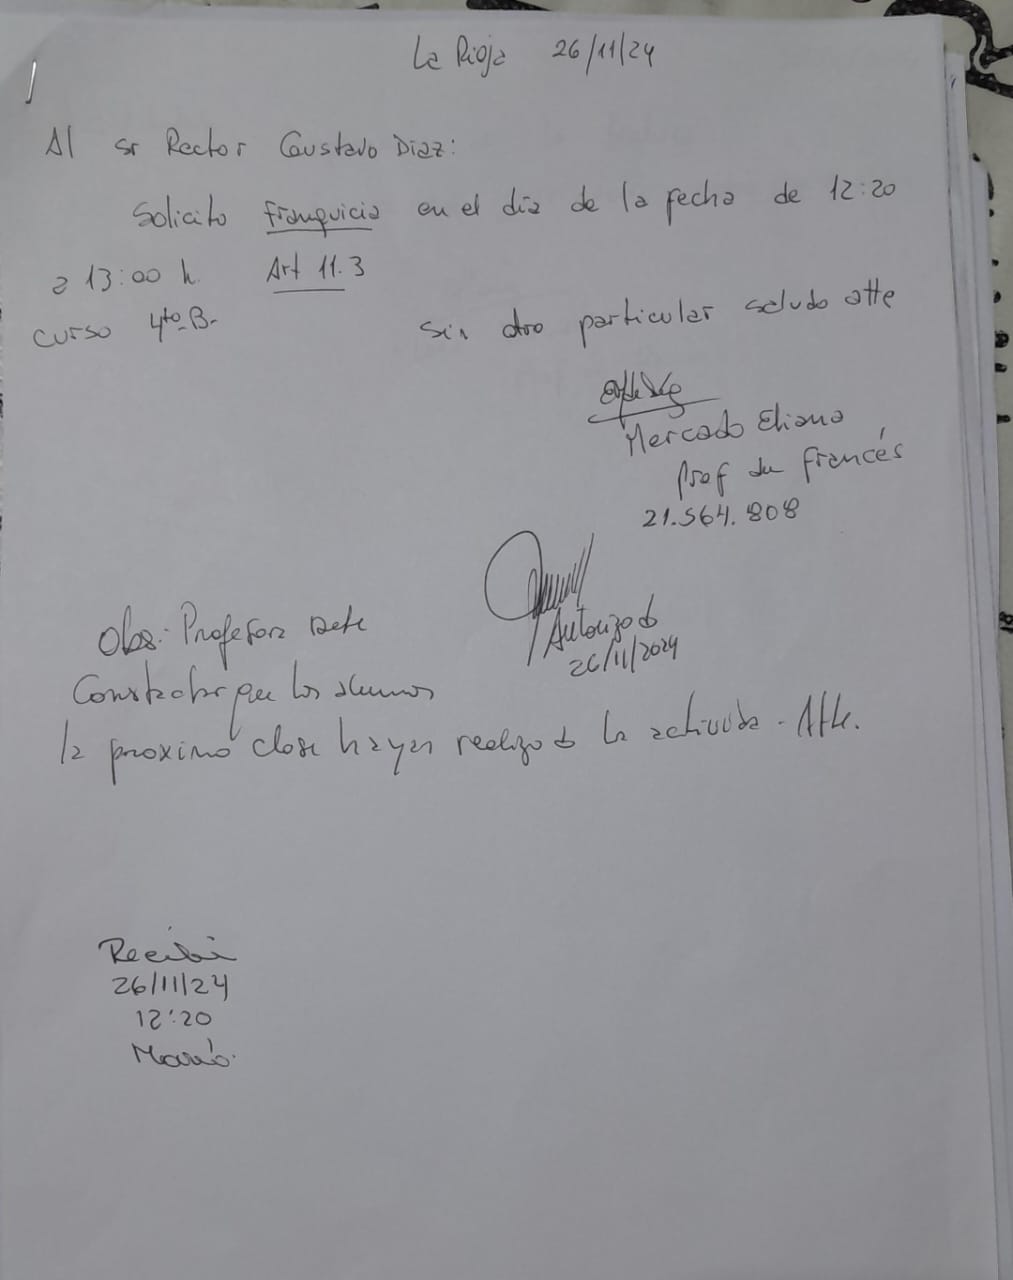 La Rioja 26/11/24
Al sr Rector Gustavo Diaz:
Solicito Franquicia en el día de la fecha de 12:20
a 13:00 h. Art 11.3
curso 4to B.
Sin otro particular saludo atte
Mercado Eliana
Prof de francés
21.564.808
Autorizado
26/11/2024
Obs: Profesora debe
Constatar que los alumnos
la proxima clase hayan realizado la actividad - Atte.
Recibi
26/11/24
12:20